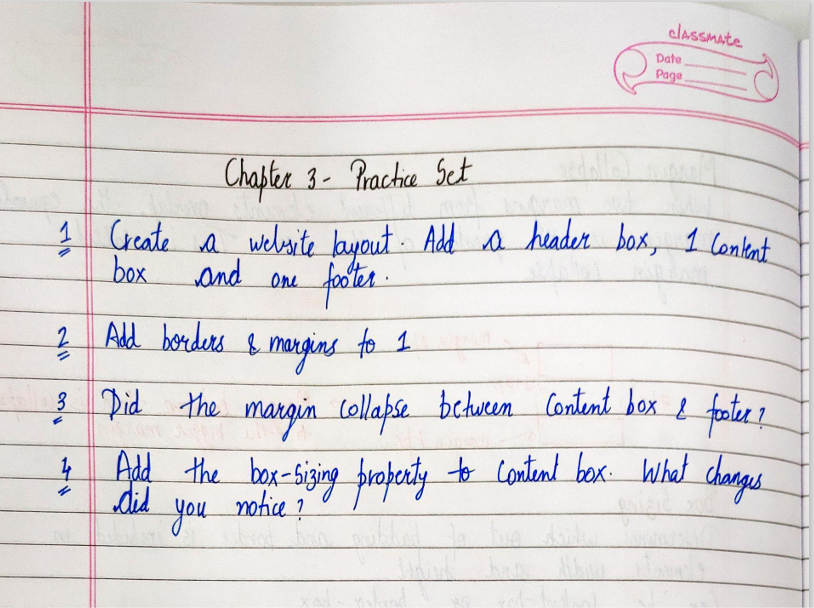 classmate
Date
Page
Chapter 3 - Practice Set
1 Create a website layout. Add a header box, 1 Content
box and one footer.
2 Add borders & margins to 1
3 Did the margin collapse between Content box & footer?
4 Add the box-sizing property to Content box. What changes
did you notice?